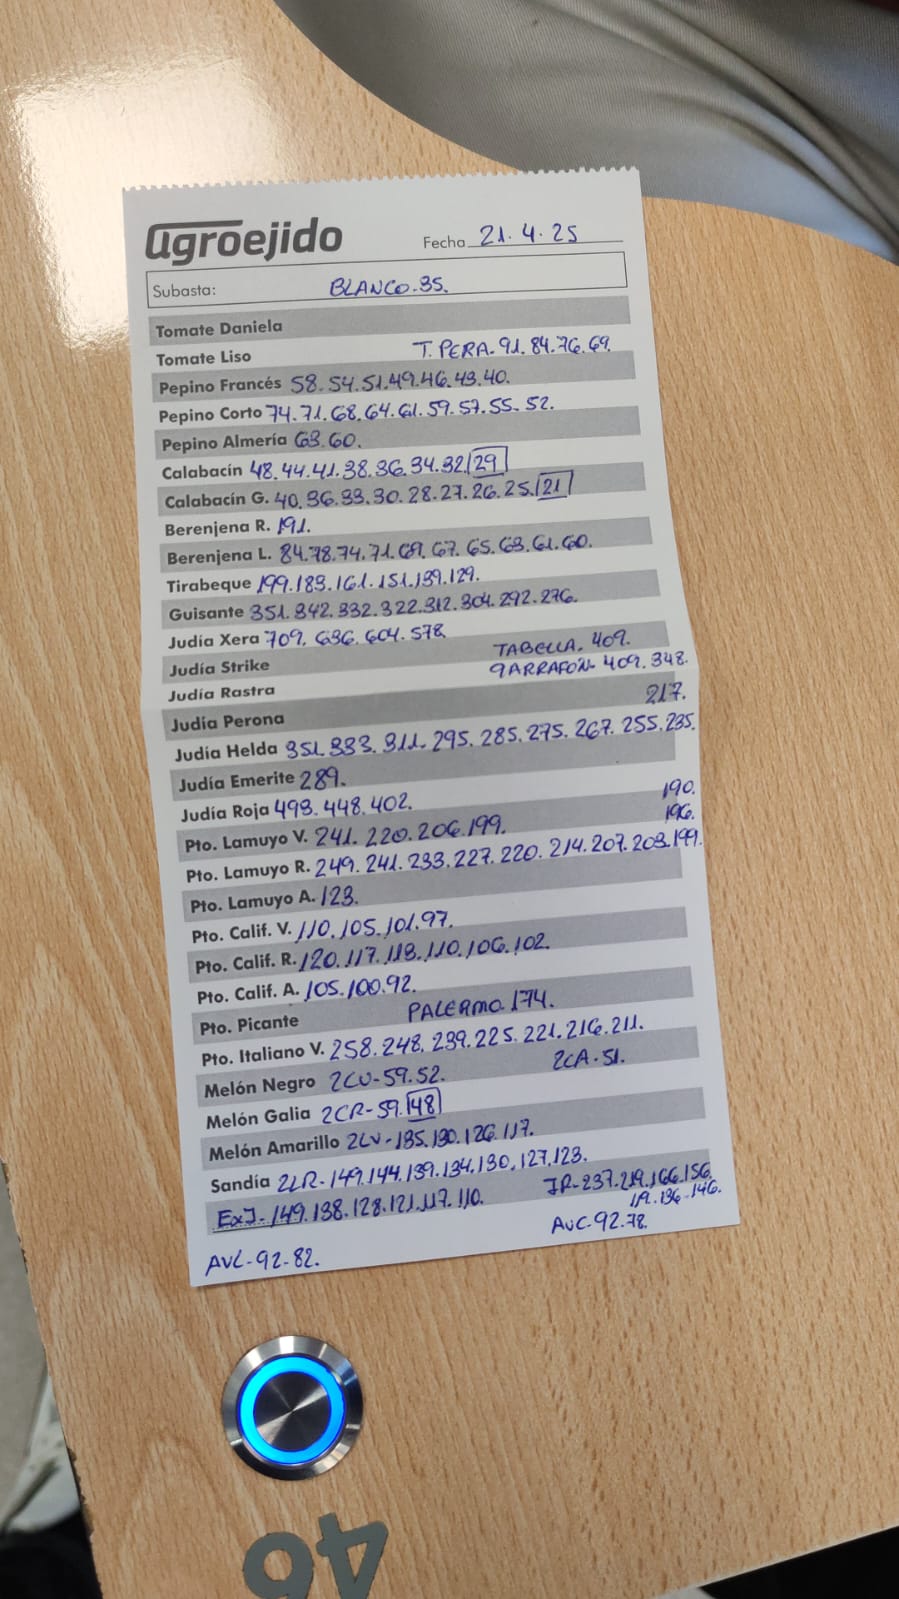 agroejido
Fecha 21.4.25
Subasta: BLANCO.35.
Tomate Daniela
Tomate Liso T.PERA.91.84.76.69.
Pepino Francés 58.54.51.49.46.43.40.
Pepino Corto 74.71.68.64.61.59.57.55.52.
Pepino Almería 63.60.
Calabacín 48.44.41.38.36.34.32.29
Calabacín G. 40.36.33.30.28.27.26.25.21
Berenjena R. 191.
Berenjena L. 84.78.74.71.69.67.65.63.61.60.
Tirabeque 199.183.161.151.139.129.
Guisante 351.342.332.322.312.304.292.276.
Judía Xera 709.636.604.578.
Judía Strike TABELLA.409.
Judía Rastra GARRAFÓN-409.348.
Judía Perona 217.
Judía Helda 351.333.311.295.285.275.267.255.235.
Judía Emerite 289.
Judía Roja 493.448.402.
190.
Pto. Lamuyo V. 241.220.206.199.
196.
Pto. Lamuyo R. 249.241.233.227.220.214.207.203.199.
Pto. Lamuyo A. 123.
Pto. Calif. V. 110.105.101.97.
Pto. Calif. R. 120.117.113.110.106.102.
Pto. Calif. A. 105.100.92.
Pto. Picante PALERMO.174.
Pto. Italiano V. 258.248.239.225.221.216.211.
Melón Negro 2CV-59.52. 2CA-51.
Melón Galia 2CR-59.48
Melón Amarillo 2LV-135.130.126.117.
Sandía 2LR-149.144.139.134.130.127.123.
ExJ-149.138.128.121.117.110. JR-237.219.166.156.
136.146.
AVL-92.82. AVC-92.78.
46